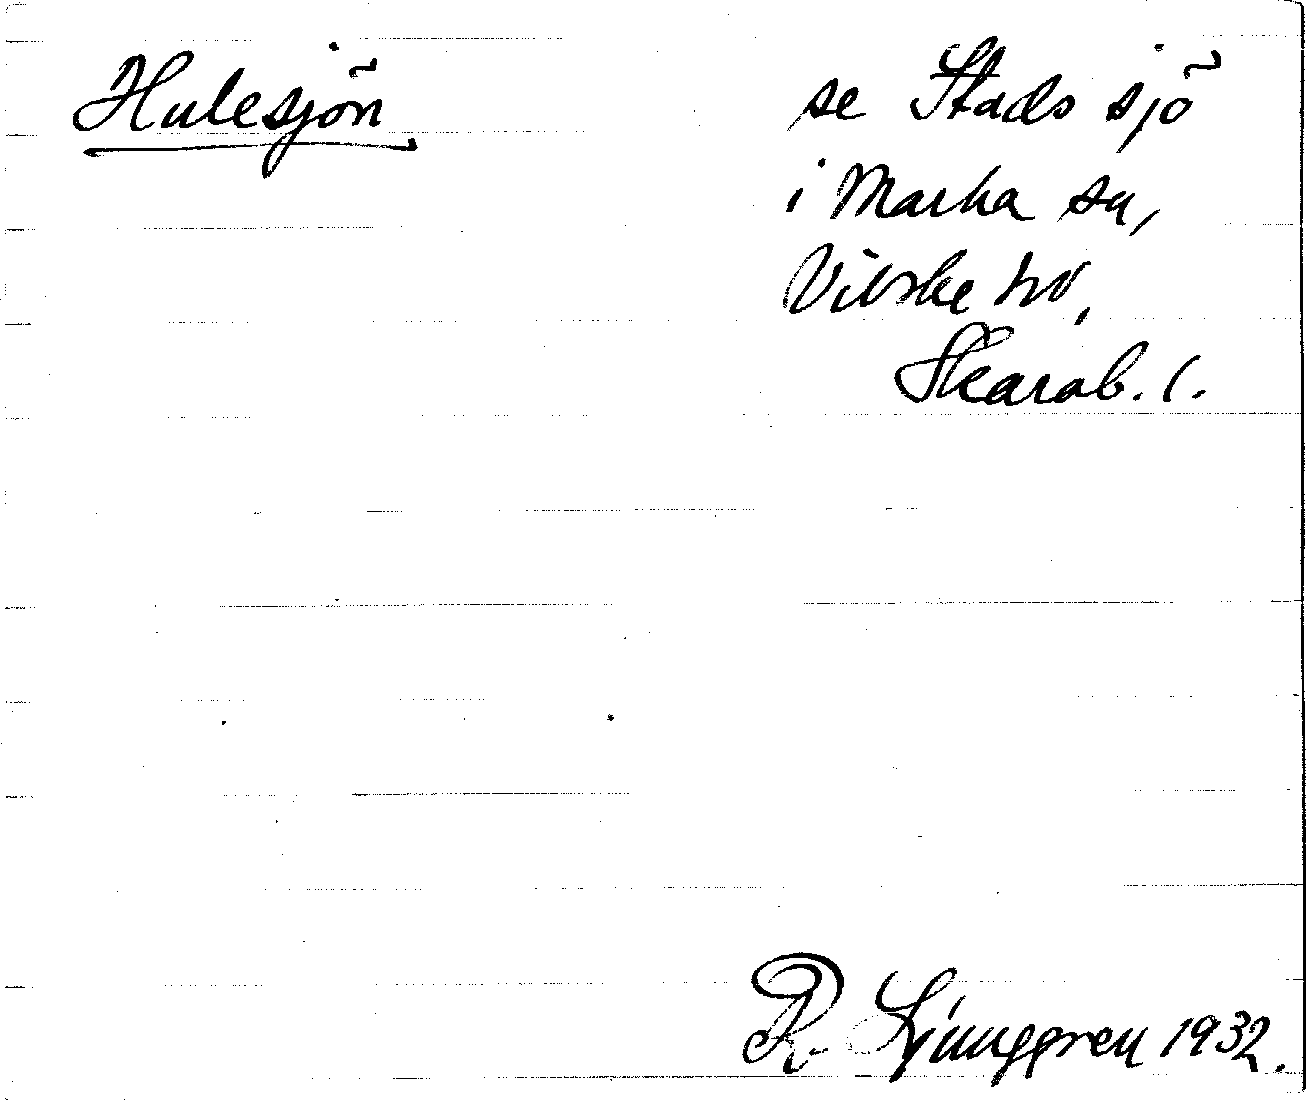 Hulesjön
se Stads sjö
i Marka sn,
Vilske hd,
Skarab. l.
R. Ljunggren 1932.